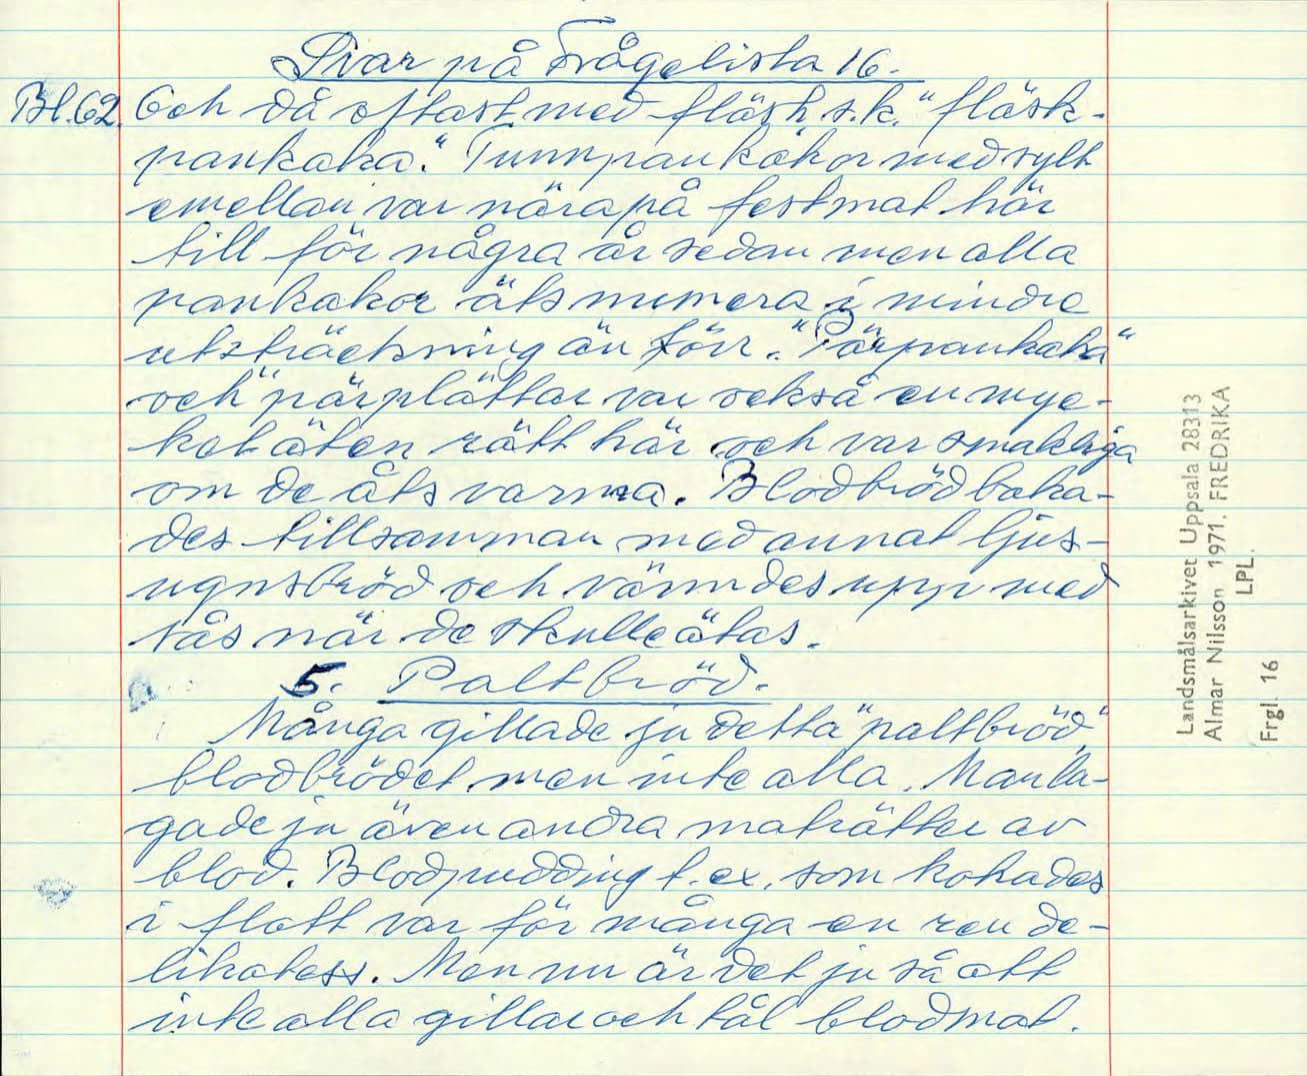 Svar på Frågelista 16.
Bl. 62. Och då oftast med fläsk s.k. "fläsk-
pankaka." Tunnpankakor med sylt
emellan var nära på festmat här
till för några år sedan men alla
pankakor äts numera i mindre
utsträckning än förr. "Pärpankaka"
och "pärplättar var också en myc-
ket äten rätt här och var smakliga
om de åts varma. Blodbröd baka-
des tillsamman med annat ljus-
ugnsbröd och värmdes upp med
sås när de skulle ätas.
5. Paltbröd.
Många gillade ju detta "paltbröd"
blodbrödet men inte alla. Man la-
gade ju även andra maträtter av
blod. Blodpudding t.ex. som kokades
i flott var för många en ren de-
likatess. Men nu är det ju så att
inte alla gillar och tål blodmat.
Landsmålsarkivet Uppsala 28313
Almar Nilsson 1971. FREDRIKA
LPL.
Frgl. 16